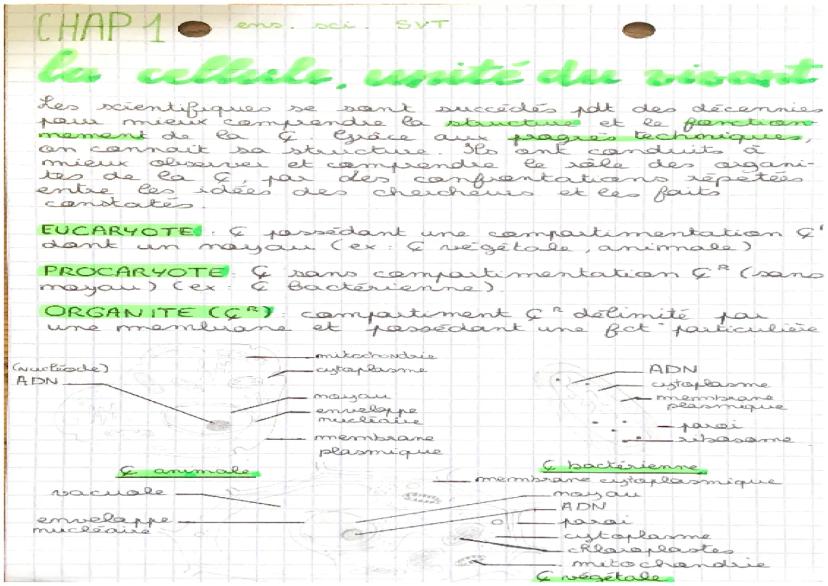 CHAP 1 ens. sci. SVT
la cellule, unité du vivant
Les scientifiques se sont succédés pdt des décennies
pour mieux comprendre la structure et le fonction-
nement de la Ç. Grâce aux progrès techniques,
on connait sa structure. Ils ont conduits à
mieux observer et comprendre le rôle des organi-
tes de la Ç, par des confrontations répétées
entre les idées des chercheurs et les faits
constatés.
EUCARYOTE : Ç possédant une compartimentation Ç
dont un noyau (ex : Ç végétale, animale)
PROCARYOTE : Ç sans compartimentation Çᴿ (sans
noyau) (ex : Ç bactérienne)
ORGANITE (Çᴿ) : compartiment Çᴿ délimité par
une membrane et possédant une fct° particulière
mitochondrie
cytoplasme
noyau
enveloppe
nucléaire
membrane
plasmique
(nucléole)
ADN
Ç animale
ADN
cytoplasme
membrane
plasmique
paroi
ribosome
Ç bactérienne
vacuole
enveloppe
nucléaire
membrane cytoplasmique
noyau
ADN
paroi
cytoplasme
chloroplastes
mitochondrie
Ç végétale